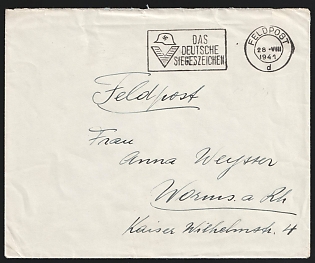 DAS
DEUTSCHE
SIEGESZEICHEN
FELDPOST
28.-VIII
1941
d
Feldpost
Frau
Anna Weysser
Worms a. Rh
Kaiser Wilhelmstr. 4